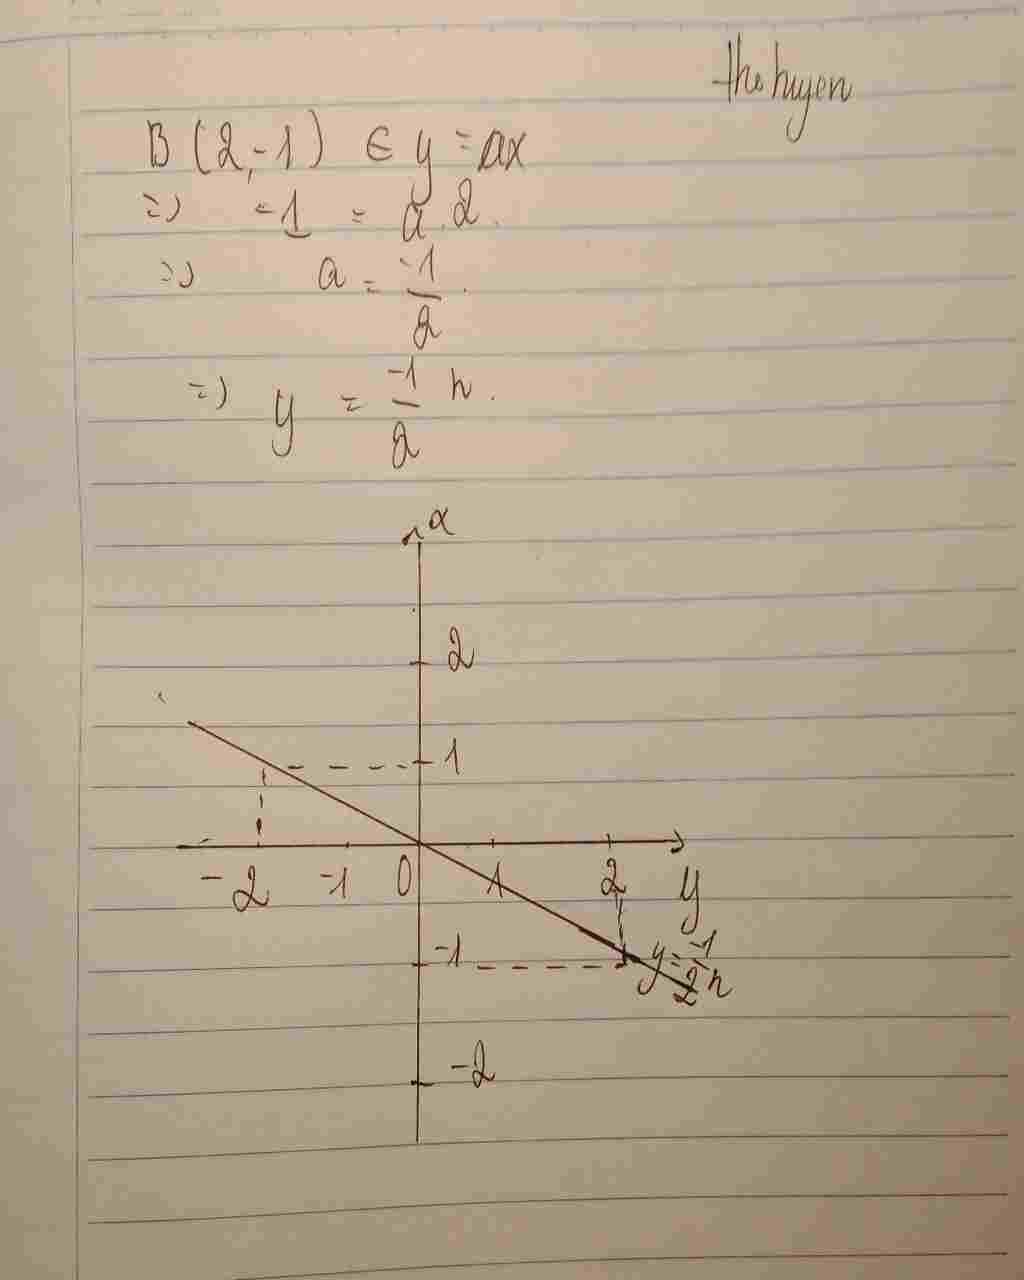 thohuyen
B (2,-1) ∈ y = ax
=> -1 = a.2.
=> a = -1/2.
=> y = -1/2 x.
x
2
1
-2 -1 0 1 2 y
-1 y = -1/2 x
-2